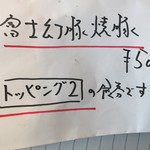 富士幻豚焼豚
¥50
トッピング2の食券です